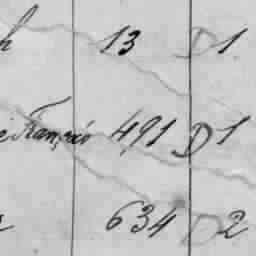 h 13 D 1
491 D 1
634 D 2